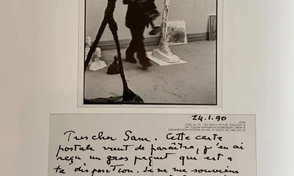 24.1.90
Tres cher Sam. Cette carte
postale vient de paraître, j'en ai
reçu un gros paquet qui est à
ta disposition. Je ne me souviens